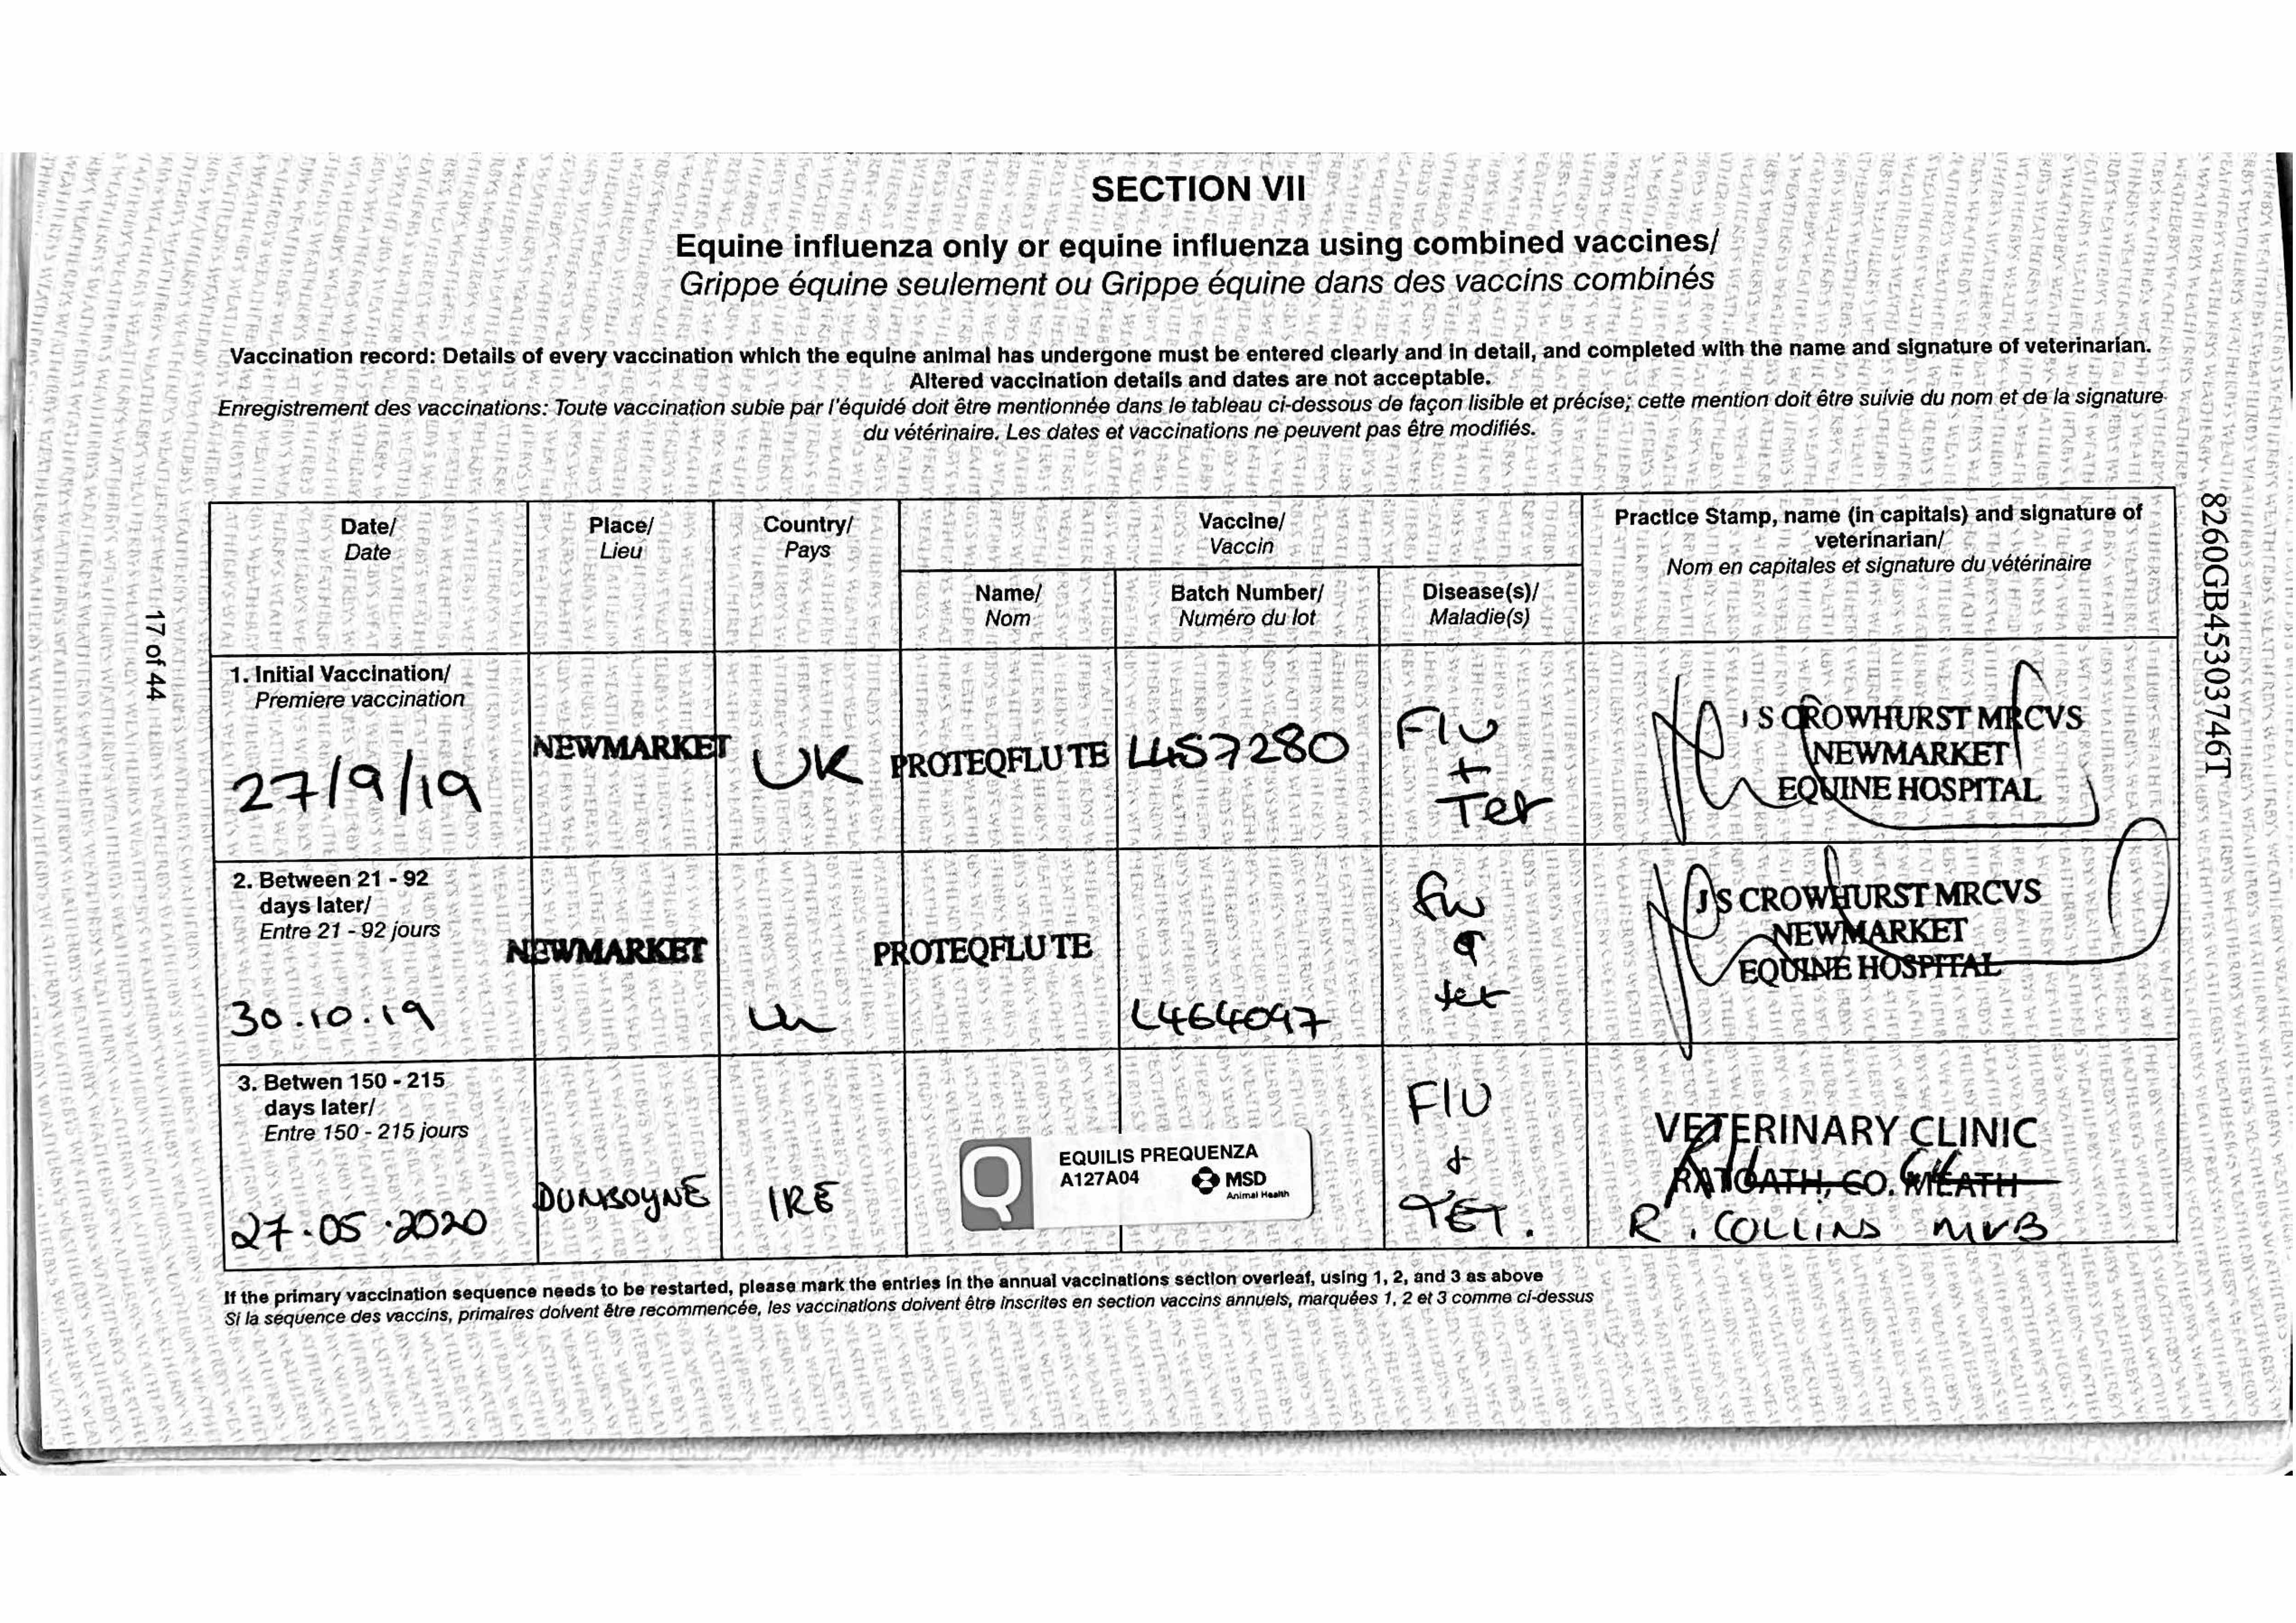 SECTION VII
Equine influenza only or equine influenza using combined vaccines/
Grippe équine seulement ou Grippe équine dans des vaccins combinés
Vaccination record: Details of every vaccination which the equine animal has undergone must be entered clearly and in detail, and completed with the name and signature of veterinarian.
Altered vaccination details and dates are not acceptable.
Enregistrement des vaccinations: Toute vaccination subie par l'équidé doit être mentionnée dans le tableau ci-dessous de façon lisible et précise; cette mention doit être suivie du nom et de la signature
du vétérinaire. Les dates et vaccinations ne peuvent pas être modifiés.
Date/
Date
Place/
Lieu
Country/
Pays
Vaccine/
Vaccin
Name/
Nom
Batch Number/
Numéro du lot
Disease(s)/
Maladie(s)
Practice Stamp, name (in capitals) and signature of
veterinarian/
Nom en capitales et signature du vétérinaire
1. Initial Vaccination/
Premiere vaccination
27/9/19
NEWMARKET
UK
PROTEQFLU TE
L457280
Flu
+
Tet
J S CROWHURST MRCVS
NEWMARKET
EQUINE HOSPITAL
2. Between 21 - 92
days later/
Entre 21 - 92 jours
30.10.19
NEWMARKET
UK
PROTEQFLU TE
L464097
Flu
tet
J S CROWHURST MRCVS
NEWMARKET
EQUINE HOSPITAL
3. Betwen 150 - 215
days later/
Entre 150 - 215 jours
27.05.2020
DUNBOYNE
IRE
EQUILIS PREQUENZA
A127A04
MSD
Animal Health
FLU
+
TET.
VETERINARY CLINIC
RATOATH, CO. MEATH
R. COLLINS MVB
If the primary vaccination sequence needs to be restarted, please mark the entries in the annual vaccinations section overleaf, using 1, 2, and 3 as above
Si la séquence des vaccins, primaires doivent être recommencée, les vaccinations doivent être inscrites en section vaccins annuels, marquées 1, 2 et 3 comme ci-dessus
17 of 44
8260GB45303746T